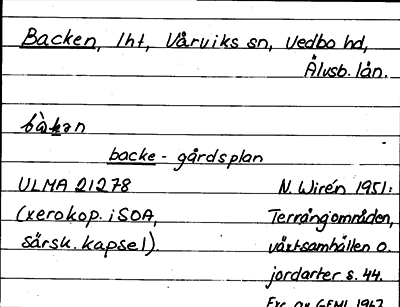 Backen, lht, Vårviks sn, Vedbo hd,
Älvsb. län.
bàkan
backe - gårdsplan
ULMA 21278 N. Wirén 1951:
(xerokop. i SOA, Terrängområden,
särsk. kapsel). växtsamhällen o.
jordarter s. 44.
Exc. av GEML 1967